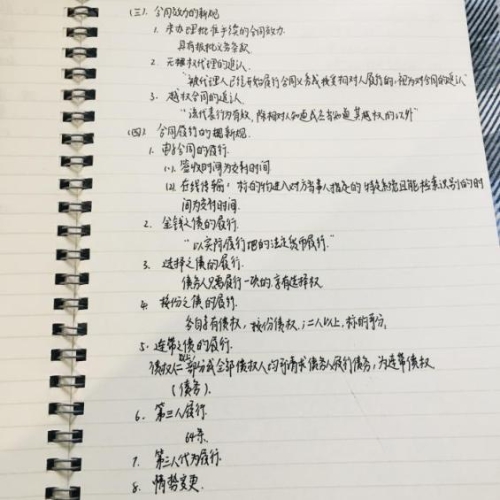 (三). 合同效力的新规
1. 未办理批准手续的合同效力
具有报批义务条款
2. 无权代理的追认
"被代理人已经开始履行合同义务或接受相对人履行的,视为对合同的追认"
3. 越权合同的追认
"该代表行为有效,除相对人知道或应当知道其越权的以外"
(四). 合同履行的新规
1. 电子合同的履行
(1). 签收时间为交付时间
(2). 在线传输:标的物进入对方当事人指定的特定系统且能检索识别的时
间为交付时间.
2. 金钱之债的履行.
"以实际履行地的法定货币履行."
3. 选择之债的履行.
债务人只需履行一项的,享有选择权
4. 按份之债的履行.
各自享有债权,按份债权,二人以上,标的可分,
5. 连带之债的履行.
债权人二以上 部分或全部债权人均可请求债务人履行债务,为连带债权
(债务).
6. 第三人履行.
条
7. 第三人代为履行.
8. 情势变更.